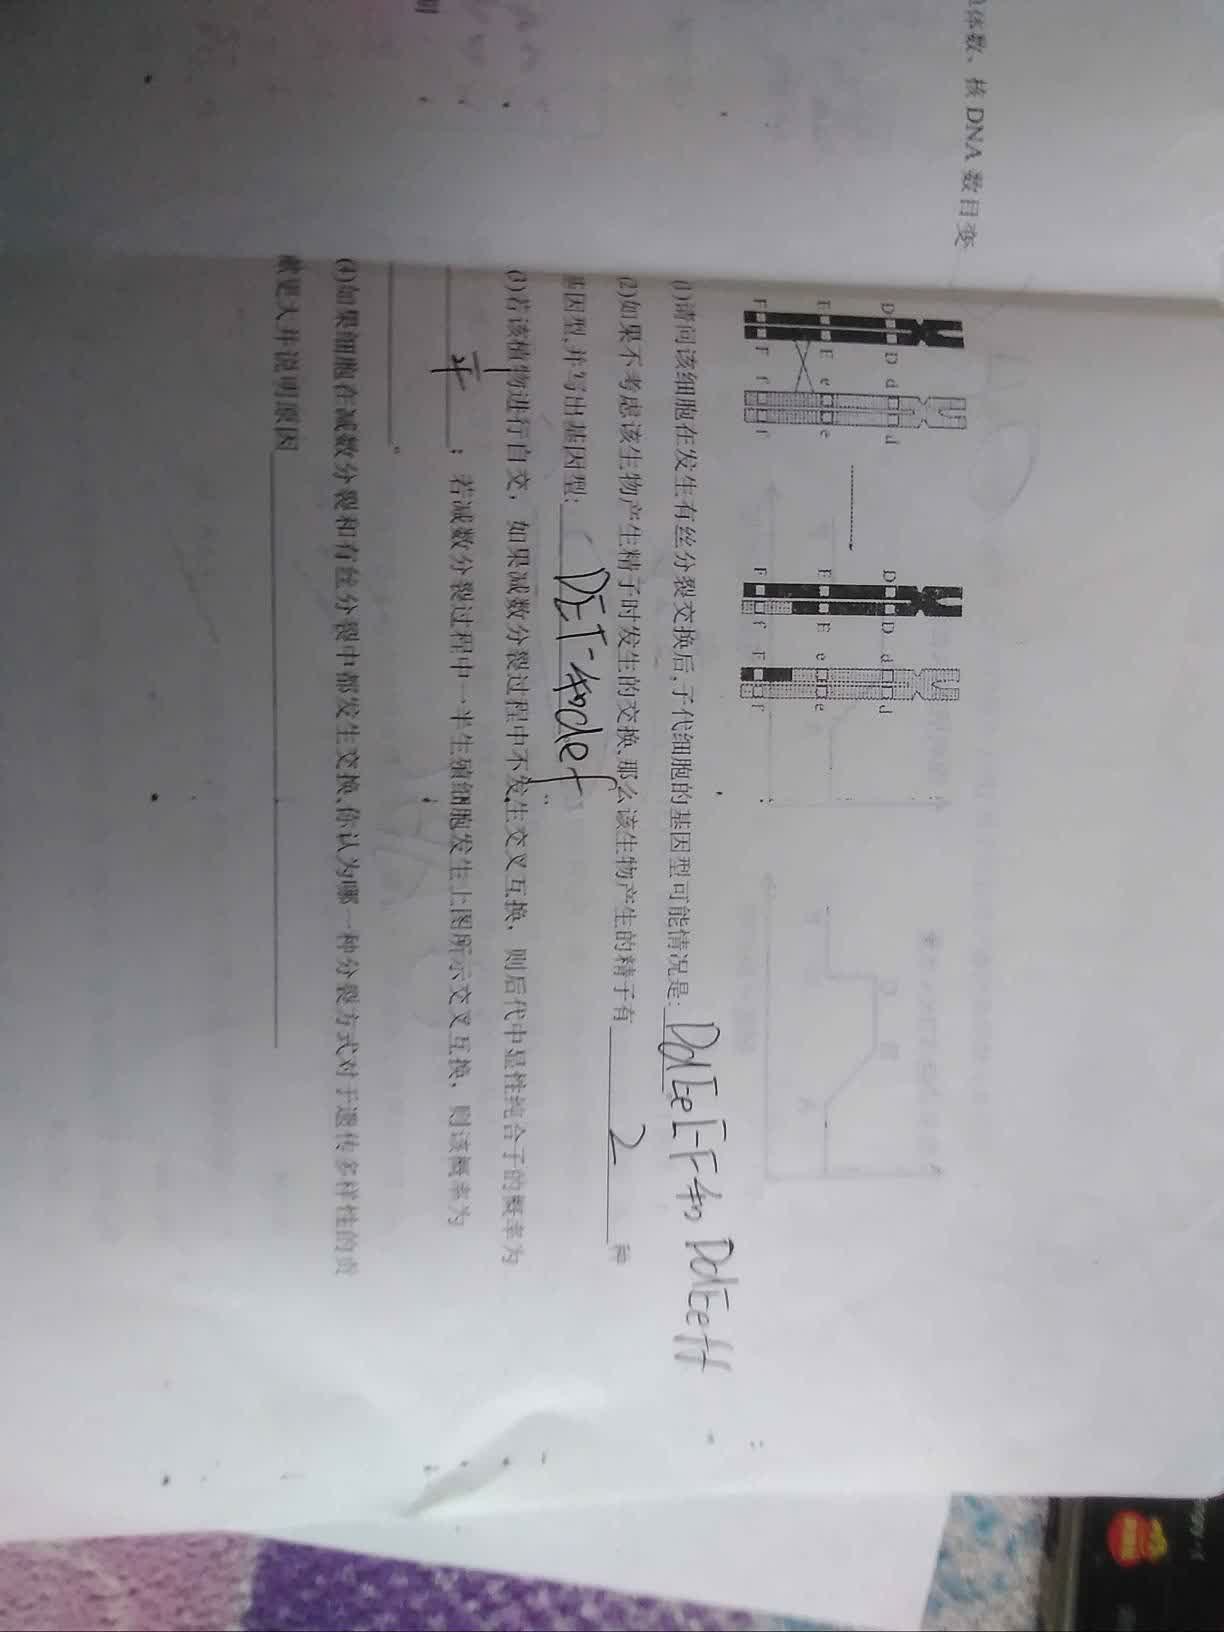 体数、核 DNA 数目变
D D d d
E E e e
F F f f
D D d d
E E e e
F f F f
(1)请问该细胞在发生有丝分裂交换后,子代细胞的基因型可能情况是: DdEeFF和DdEeff
(2)如果不考虑该生物产生精子时发生的交换,那么该生物产生的精子有 2 种
基因型,并写出基因型: DEF和def
(3)若该植物进行自交，如果减数分裂过程中不发生交叉互换，则后代中显性纯合子的概率为
；若减数分裂过程中一半生殖细胞发生上图所示交叉互换，则该概率为
。
(4)如果细胞在减数分裂和有丝分裂中都发生交换,你认为哪一种分裂方式对于遗传多样性的贡
献更大并说明原因